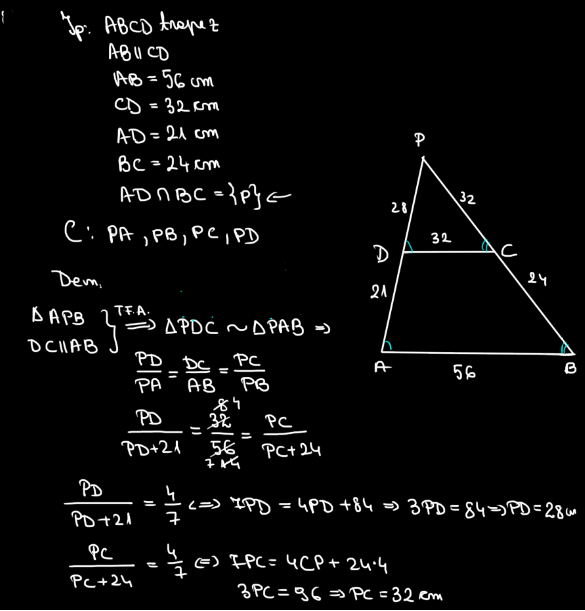 Ip: ABCD trapez
AB ∥ CD
AB = 56 cm
CD = 32 cm
AD = 21 cm
BC = 24 cm
AD ∩ BC = {P} ←
C: PA, PB, PC, PD
Dem.
ΔAPB
DC ∥ AB } T.F.A. ⟹ ΔPDC ~ ΔPAB ⇒
PD/PA = DC/AB = PC/PB
PD/(PD+21) = 32/56 = PC/(PC+24)
8 4
7 14
PD/(PD+21) = 4/7 ⇔ 7PD = 4PD + 84 ⇒ 3PD = 84 ⇒ PD = 28 cm
PC/(PC+24) = 4/7 ⇔ 7PC = 4CP + 24·4
3PC = 96 ⇒ PC = 32 cm
P
28
32
D
32
C
21
24
A
56
B